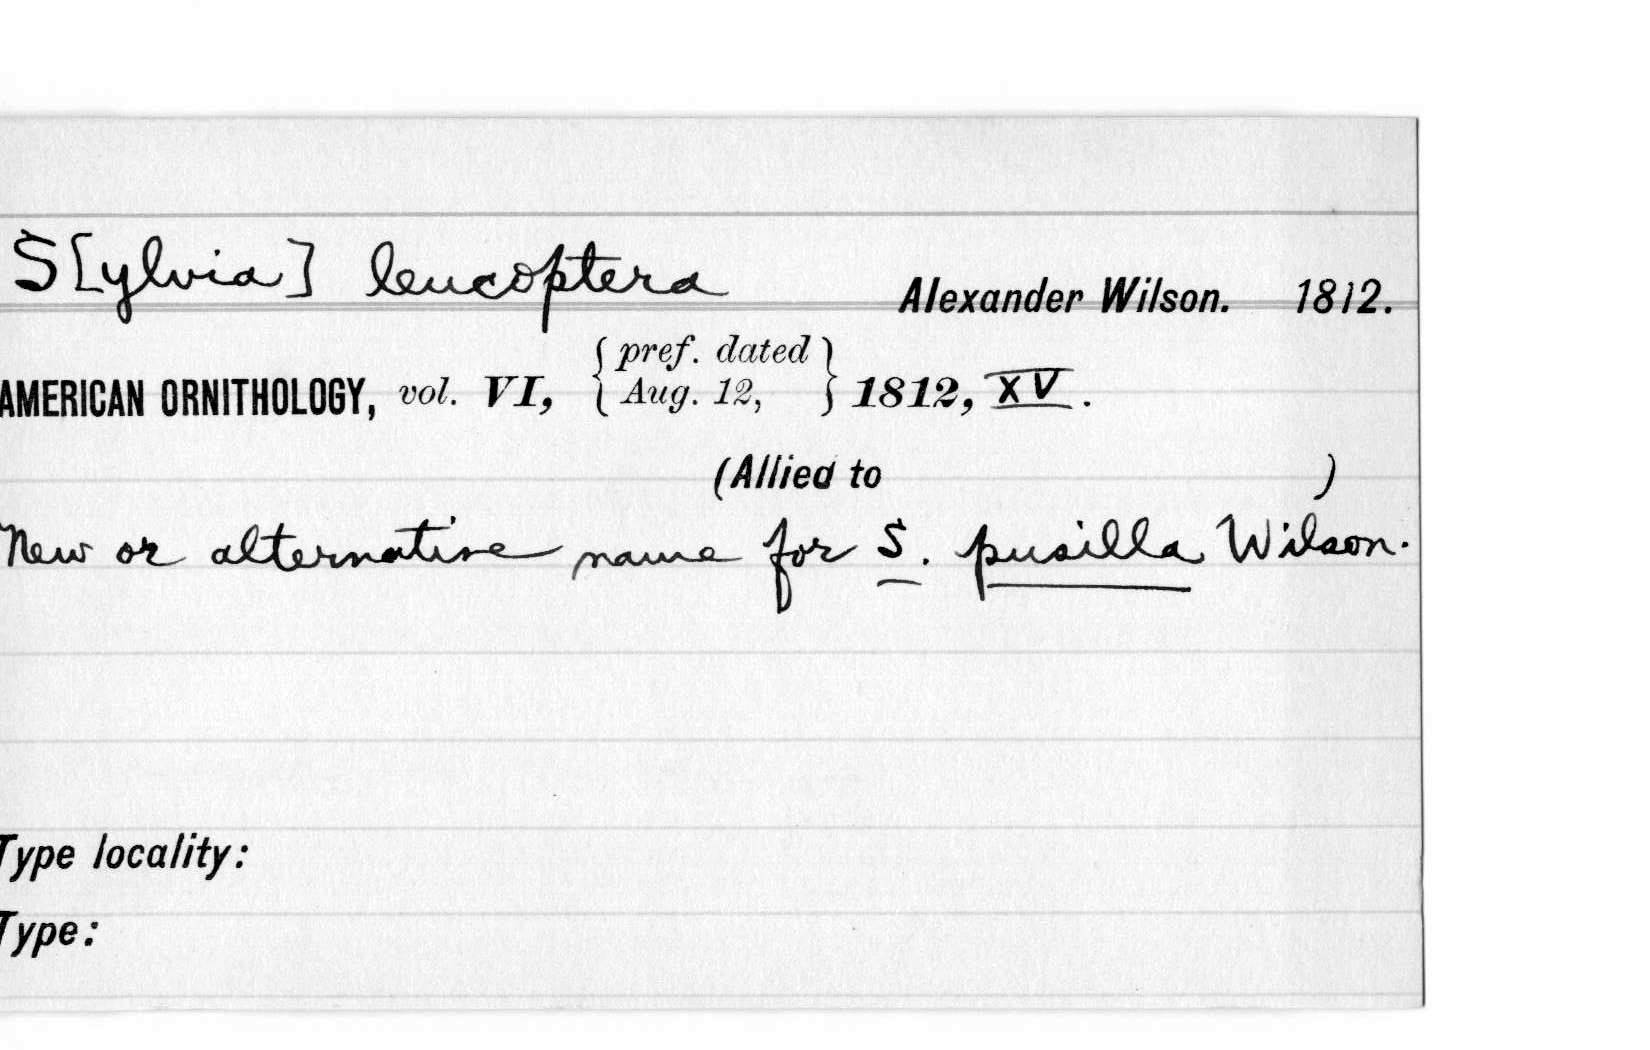 S[ylvia] leucoptera Alexander Wilson. 1812.
AMERICAN ORNITHOLOGY, vol. VI, { pref. dated Aug. 12, } 1812, XV.
(Allied to )
New or alternative name for S. pusilla Wilson.
Type locality:
Type: